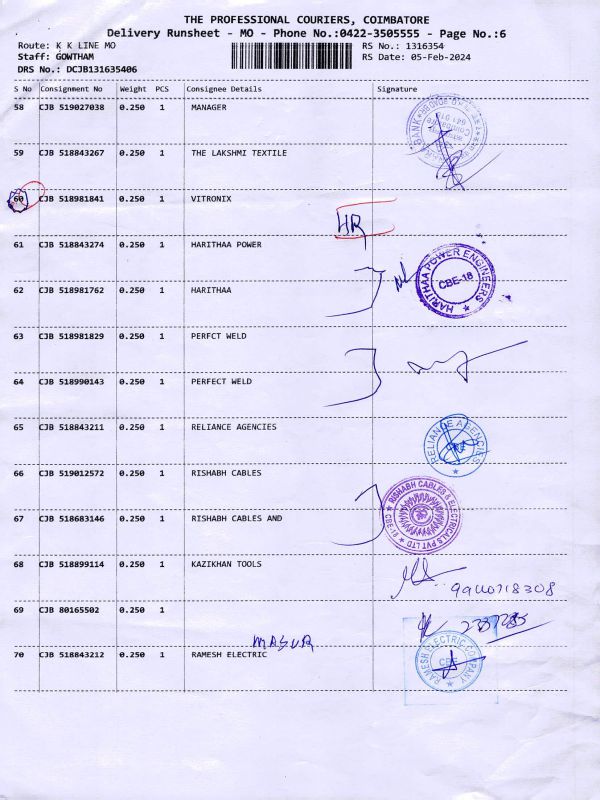 THE PROFESSIONAL COURIERS, COIMBATORE
Delivery Runsheet - MO - Phone No.:0422-3505555 - Page No.:6
Route: K K LINE MO RS No.: 1316354
Staff: GOWTHAM RS Date: 05-Feb-2024
DRS No.: DCJB131635406
S No Consignment No Weight PCS Consignee Details Signature
58 CJB 519027038 0.250 1 MANAGER
BANK
59 CJB 518843267 0.250 1 THE LAKSHMI TEXTILE
60 CJB 518981841 0.250 1 VITRONIX
HR
61 CJB 518843274 0.250 1 HARITHAA POWER
HARITHAA POWER ENGINEERS
CBE-18
62 CJB 518981762 0.250 1 HARITHAA
63 CJB 518981829 0.250 1 PERFCT WELD
64 CJB 518990143 0.250 1 PERFECT WELD
65 CJB 518843211 0.250 1 RELIANCE AGENCIES
RELIANCE AGENCIES
66 CJB 519012572 0.250 1 RISHABH CABLES
RISHABH CABLES & ELECTRICALS PVT LTD
67 CJB 518683146 0.250 1 RISHABH CABLES AND
68 CJB 518899114 0.250 1 KAZIKHAN TOOLS
69 CJB 80165502 0.250 1
MASUR
70 CJB 518843212 0.250 1 RAMESH ELECTRIC
RAMESH ELECTRIC COMPANY
CBE